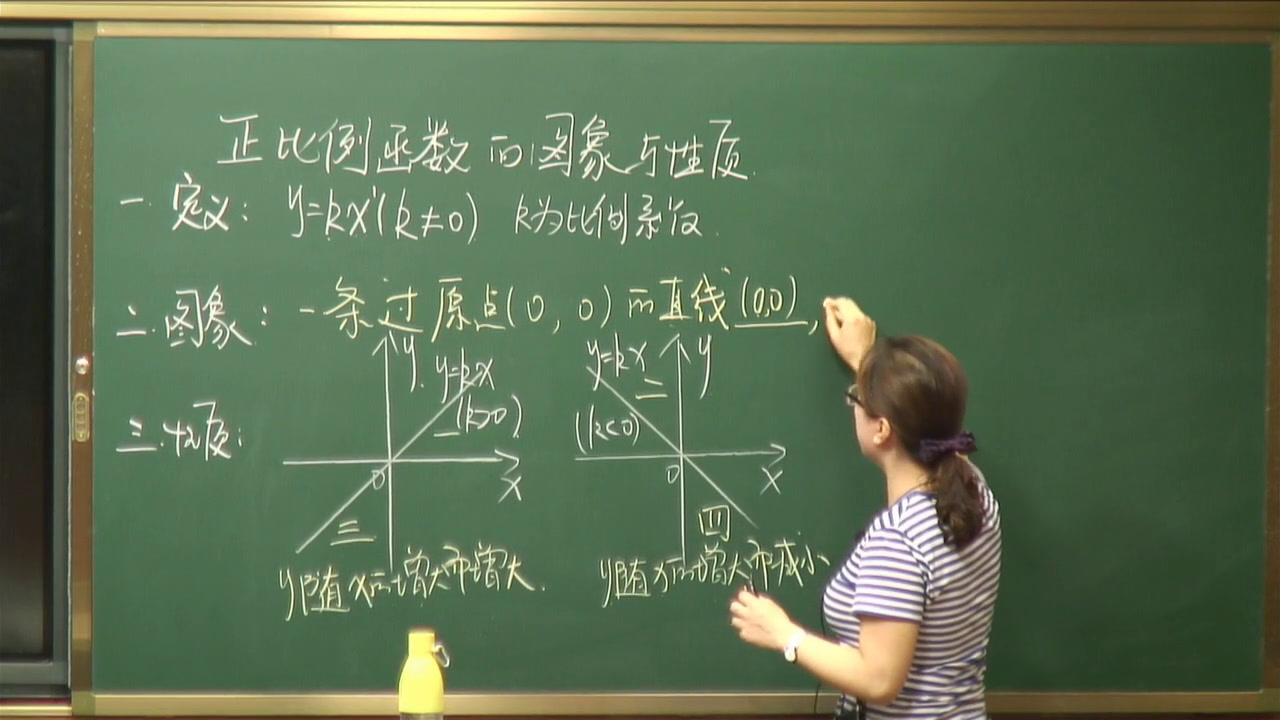 正比例函数的图象与性质
一.定义: y=kx(k≠0) k为比例系数.
二.图象: 一条过原点(0,0)的直线(0,0),
三.性质:
y
y=kx
(k>0)
一
0
x
三
y随x的增大而增大.
y=kx
y
二
(k<0)
0
x
四
y随x的增大而减小